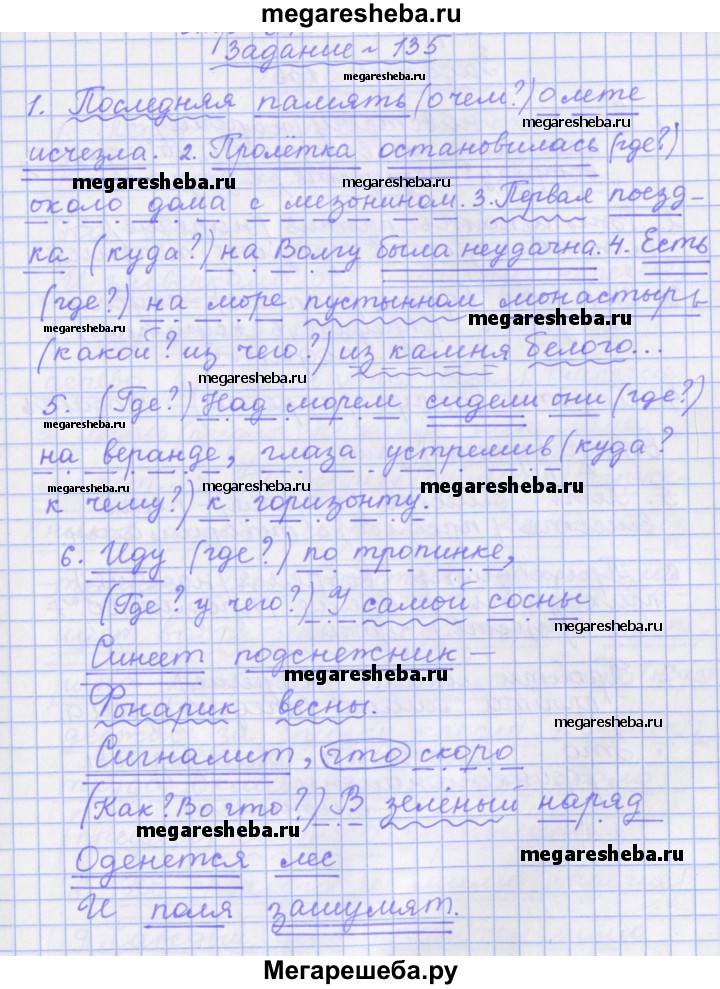 megaresheba.ru
Задание ~ 135
megaresheba.ru
1. Последняя память (о чем?) о лете
megaresheba.ru
исчезла. 2. Пролётка остановилась (где?)
megaresheba.ru megaresheba.ru
около дома с мезонином. 3. Первая поезд-
ка (куда?) на Волгу была неудачна. 4. Есть
(где?) на море пустынном монастырь
megaresheba.ru megaresheba.ru
(какой? из чего?) из камня белого...
megaresheba.ru
5. (Где?) Над морем сидели они (где?)
megaresheba.ru
на веранде, глаза устремив (куда?
megaresheba.ru megaresheba.ru megaresheba.ru
к чему?) к горизонту.
6. Иду (где?) по тропинке,
(Где? у чего?) У самой сосны
megaresheba.ru
Синеет подснежник –
megaresheba.ru
Фонарик весны.
megaresheba.ru
Сигналит, что скоро
(Как? Во что?) В зелёный наряд
megaresheba.ru
Оденется лес
megaresheba.ru
И поля зашумят.
Мегарешеба.ру